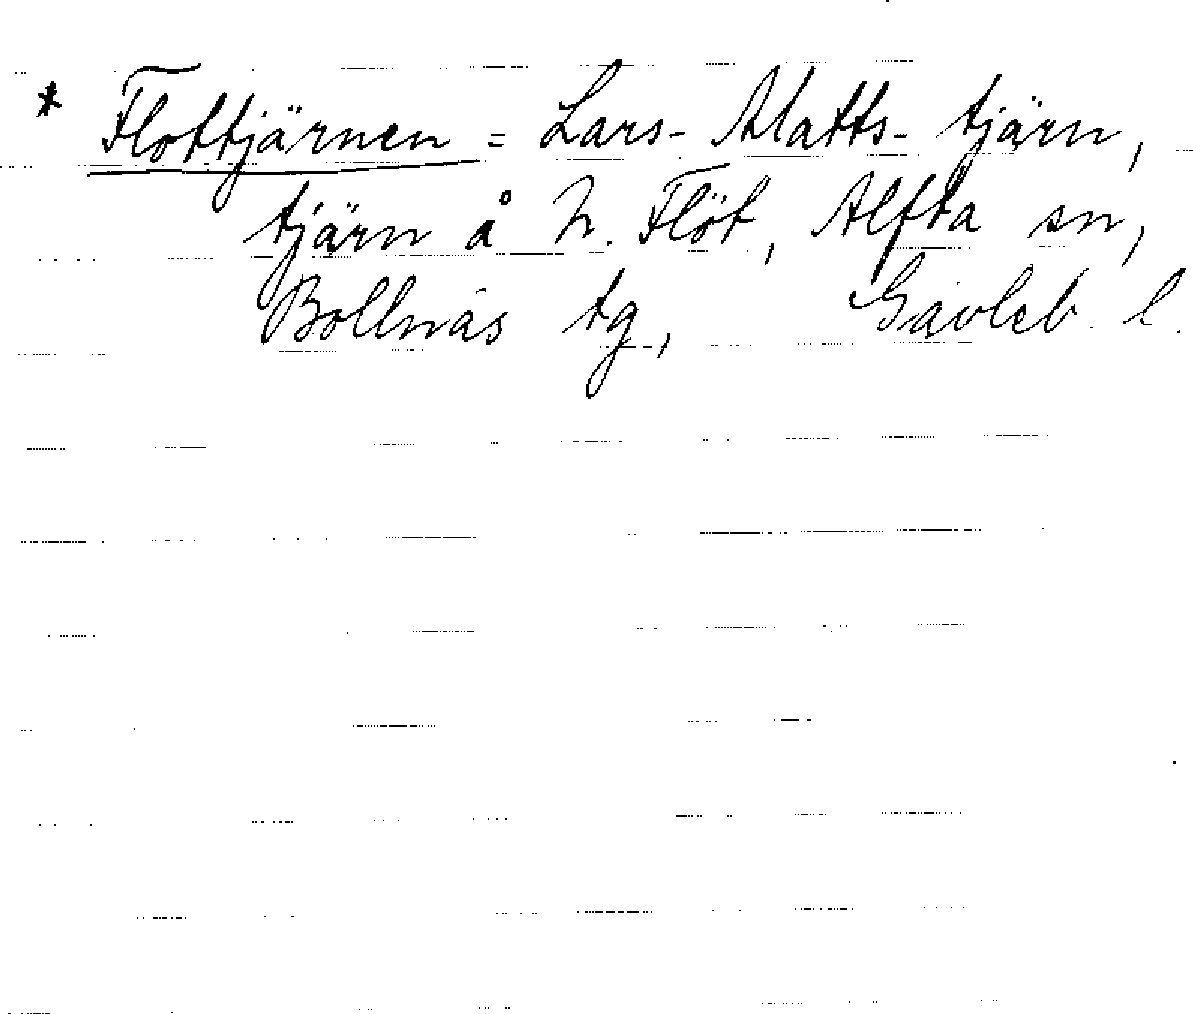 * Flottjärnen = Lars-Matts-tjärn,
tjärn å N. Flöt, Alfta sn,
Bollnäs tg, Gävleb. l.